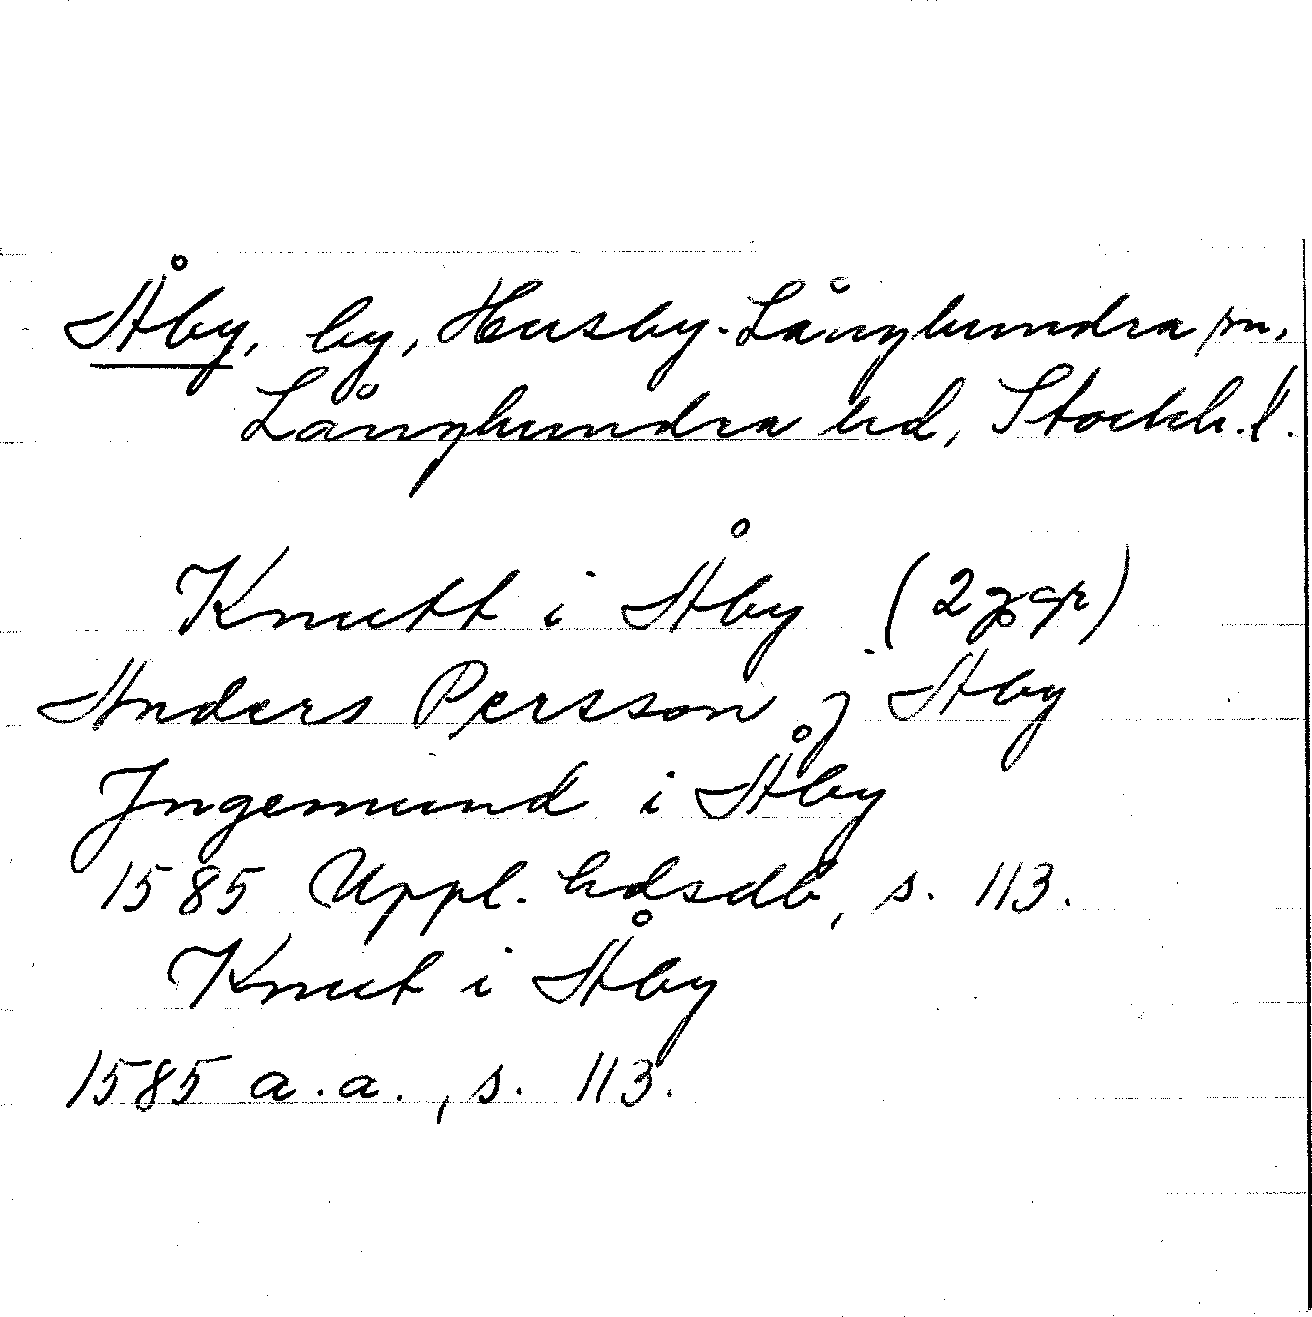 Åby, by, Husby-Långhundra sn,
Långhundra hd, Stockh. l.
Knutt i Åby (2 ggr)
Anders Persson j Aby
Jngemund i Åby
1585 Uppl. hdsdb, s. 113.
Knut i Åby
1585 a.a., s. 113.